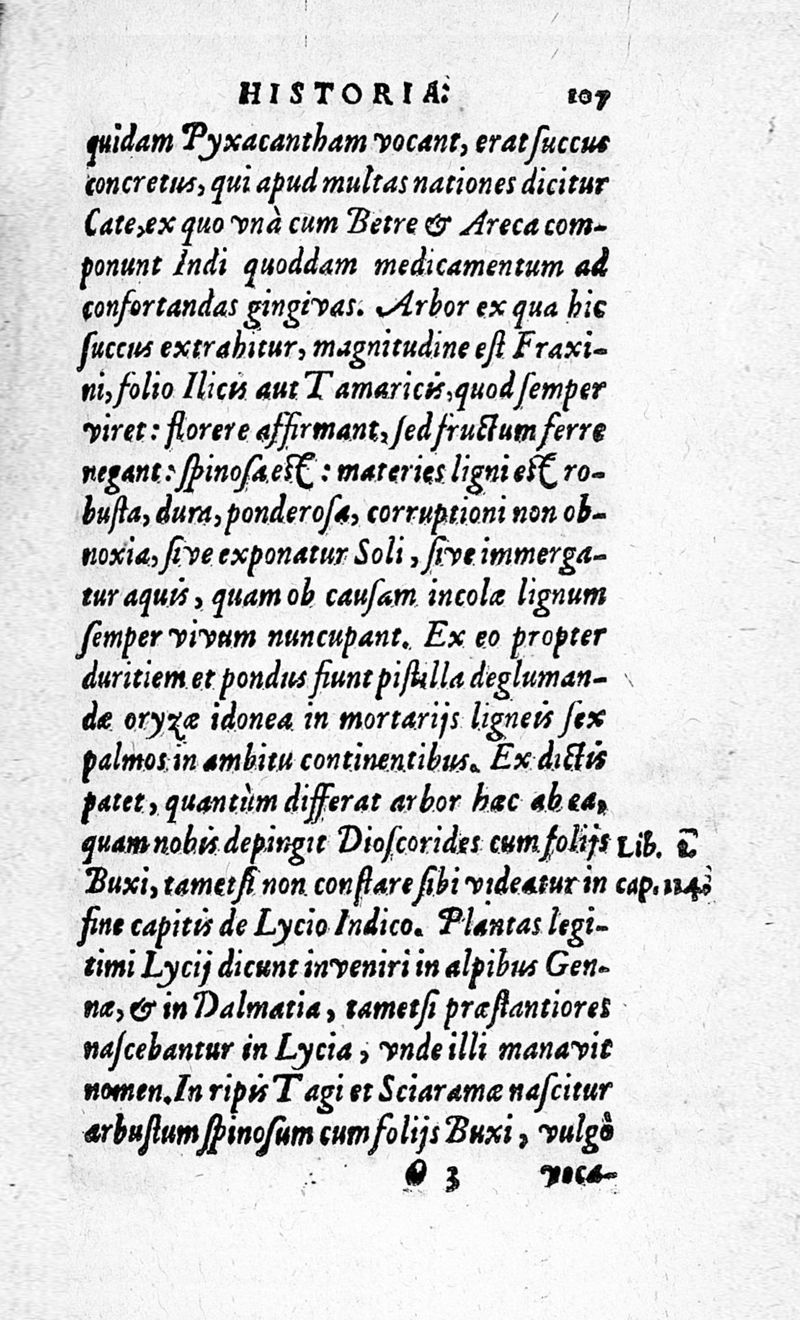 HISTORIA. 107
quidam Pyxacantham vocant, erat ſuccus
concretus, qui apud multas nationes dicitur
Cate, ex quo vnà cum Betre & Areca com-
ponunt Indi quoddam medicamentum ad
confortandas gingivas. Arbor ex qua hic
ſuccus extrahitur, magnitudine eſt Fraxi-
ni, folio Ilicis aut Tamaricis, quod ſemper
viret: florere affirmant, ſed fructum ferre
negant: ſpinoſa eſt: materies ligni eſt ro-
buſta, dura, ponderoſa, corruptioni non ob-
noxia, ſive exponatur Soli, ſive immerga-
tur aquis, quam ob cauſam incolæ lignum
ſemper vivum nuncupant. Ex eo propter
duritiem et pondus fiunt piſtilla degluman-
dæ oryzæ idonea in mortarijs ligneis ſex
palmos in ambitu continentibus. Ex dictis
patet, quantùm differat arbor hæc ab ea,
quam nobis depingit Dioſcorides cum folijs
Lib. 1
Buxi, tametſi non conſtare ſibi videatur in
cap. 114.
fine capitis de Lycio Indico. Plantas legi-
timi Lycij dicunt inveniri in alpibus Gen-
næ, & in Dalmatia, tametſi præſtantiores
naſcebantur in Lycia, vnde illi manavit
nomen. In ripis Tagi et Sciaramæ naſcitur
arbuſtum ſpinoſum cum folijs Buxi, vulgò
O 3 voca-